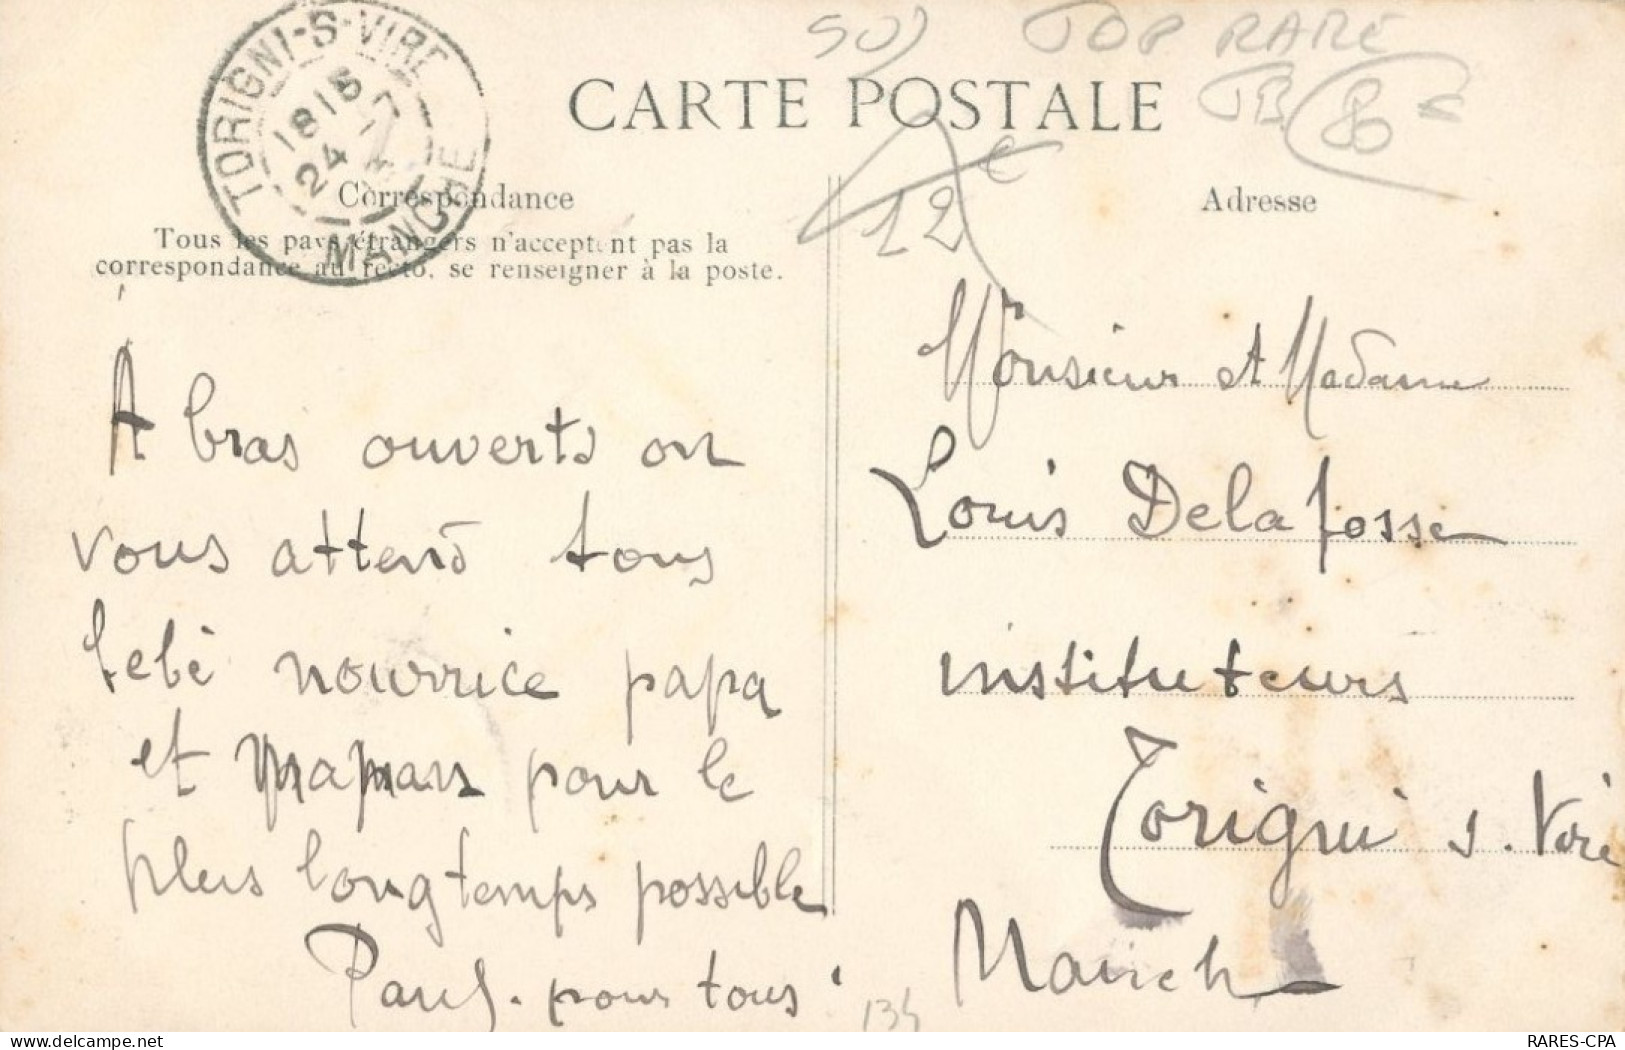 50) TOP RARE
TB 80€
CARTE POSTALE
TORIGNI-S-VIRE
1815
24
MANCHE
12 €
Correspondance
Adresse
Tous les pays étrangers n'acceptent pas la
correspondance au recto, se renseigner à la poste.
A bras ouverts on
vous attend tous
bébé nourrice papa
et maman pour le
plus longtemps possible
Paul. pour tous
Monsieur et Madame
Louis Delafosse
instituteurs
Torigni s. Vire
Manch
134
RARES-CPA